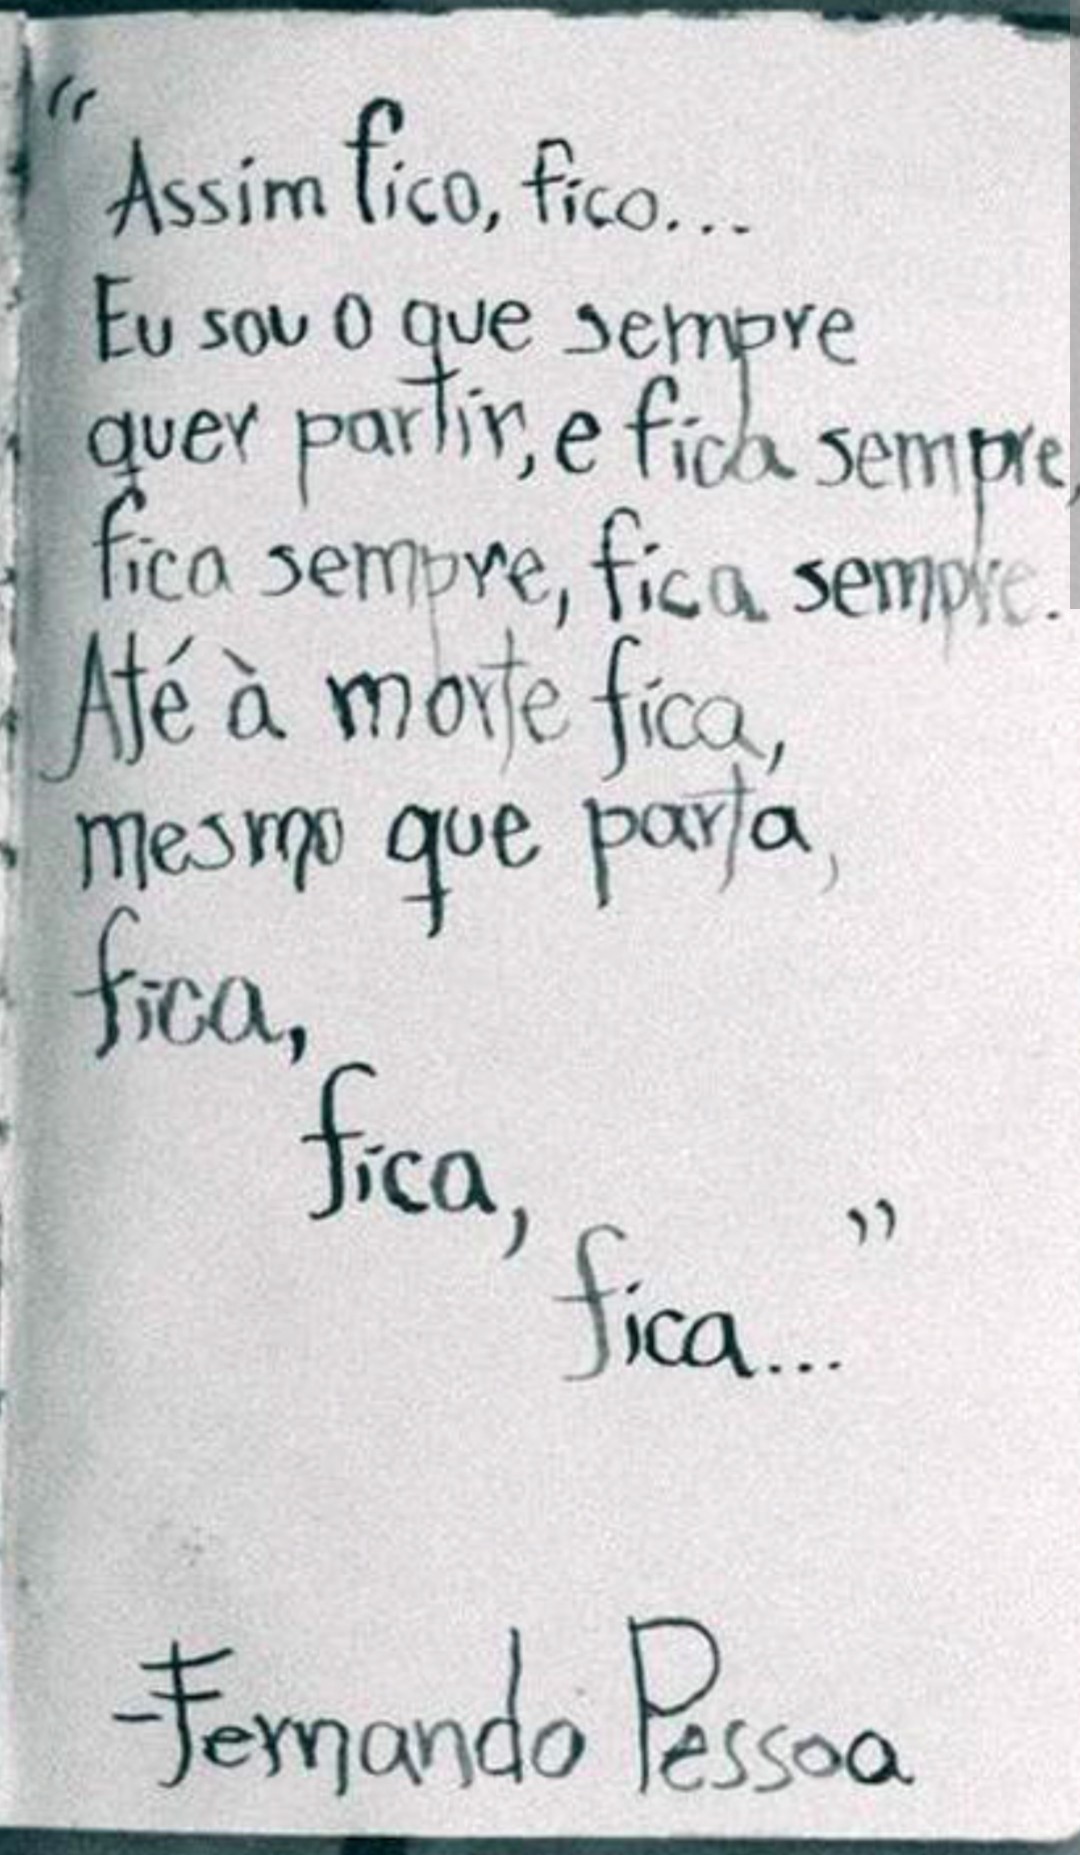 “
Assim fico, fico...
Eu sou o que sempre
quer partir, e fica sempre,
fica sempre, fica sempre.
Até à morte fica,
mesmo que parta,
fica,
fica,
fica...”
-Fernando Pessoa